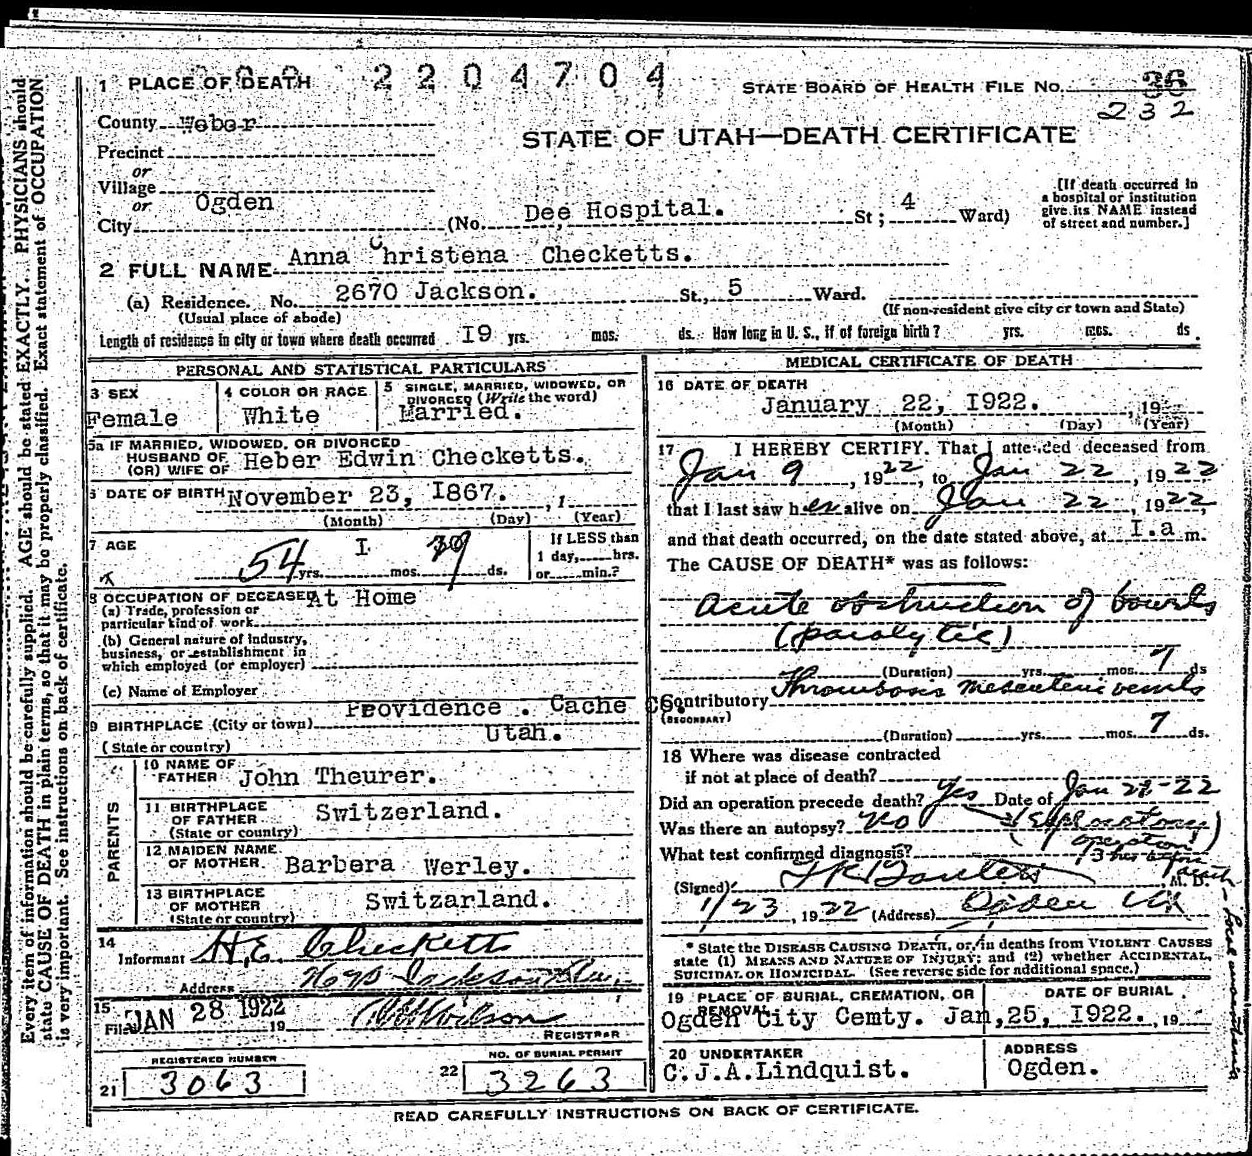 2204704
1 PLACE OF DEATH
STATE BOARD OF HEALTH FILE NO. 26
232
County Weber
STATE OF UTAH—DEATH CERTIFICATE
Precinct
or
Village
or
City Ogden (No. Dee Hospital. St; 4 Ward)
[If death occurred in a hospital or institution give its NAME instead of street and number.]
2 FULL NAME Anna Christena Checketts.
(a) Residence. No. 2670 Jackson. St., 5 Ward.
(Usual place of abode) (If non-resident give city or town and State)
Length of residence in city or town where death occurred I9 yrs. mos. ds. How long in U. S., if of foreign birth? yrs. mos. ds.
PERSONAL AND STATISTICAL PARTICULARS
3 SEX Female
4 COLOR OR RACE White
5 SINGLE, MARRIED, WIDOWED, OR DIVORCED (Write the word) Married.
5a IF MARRIED, WIDOWED, OR DIVORCED
HUSBAND OF
(OR) WIFE OF Heber Edwin Checketts.
6 DATE OF BIRTH November 23, I867. , 1
(Month) (Day) (Year)
7 AGE 54 yrs. I mos. ds.
If LESS than 1 day, hrs. or min.?
8 OCCUPATION OF DECEASED At Home
(a) Trade, profession or particular kind of work
(b) General nature of industry, business, or establishment in which employed (or employer)
(c) Name of Employer
9 BIRTHPLACE (City or town) Providence . Cache Co.
(State or country) Utah.
PARENTS
10 NAME OF FATHER John Theurer.
11 BIRTHPLACE OF FATHER (State or country) Switzerland.
12 MAIDEN NAME OF MOTHER Barbera Werley.
13 BIRTHPLACE OF MOTHER (State or country) Switzarland.
14
Informant H.E. Checketts
Address Jackson
15
Filed JAN 28 1922 19
REGISTRAR
REGISTERED NUMBER
21 3063
NO. OF BURIAL PERMIT
22 3263
MEDICAL CERTIFICATE OF DEATH
16 DATE OF DEATH
January 22, I922. , 19
(Month) (Day) (Year)
17 I HEREBY CERTIFY. That I attended deceased from
Jan 9, 1922, to Jan 22, 1922
that I last saw her alive on Jan 22, 1922,
and that death occurred, on the date stated above, at I.a m.
The CAUSE OF DEATH* was as follows:
Acute obstruction of bowels
(paralytic)
(Duration) yrs. mos. 7 ds
Contributory Thrombosis mesenteric vessels
(SECONDARY)
(Duration) yrs. mos. 7 ds.
18 Where was disease contracted
if not at place of death?
Did an operation precede death? Yes Date of Jan 22-22
Was there an autopsy? No (Exploratory
operation)
What test confirmed diagnosis?
(Signed) M. D.
1/23, 1922 (Address) Ogden
* State the DISEASE CAUSING DEATH, or, in deaths from VIOLENT CAUSES state (1) MEANS AND NATURE OF INJURY; and (2) whether ACCIDENTAL, SUICIDAL OR HOMICIDAL. (See reverse side for additional space.)
19 PLACE OF BURIAL, CREMATION, OR REMOVAL
DATE OF BURIAL
Ogden City Cemty. Jan,25, I922. , 19
20 UNDERTAKER
C.J.A.Lindquist.
ADDRESS
Ogden.
READ CAREFULLY INSTRUCTIONS ON BACK OF CERTIFICATE.
Every item of information should be carefully supplied. AGE should be stated EXACTLY. PHYSICIANS should
state CAUSE OF DEATH in plain terms, so that it may be properly classified. Exact statement of OCCUPATION
is very important. See instructions on back of certificate.